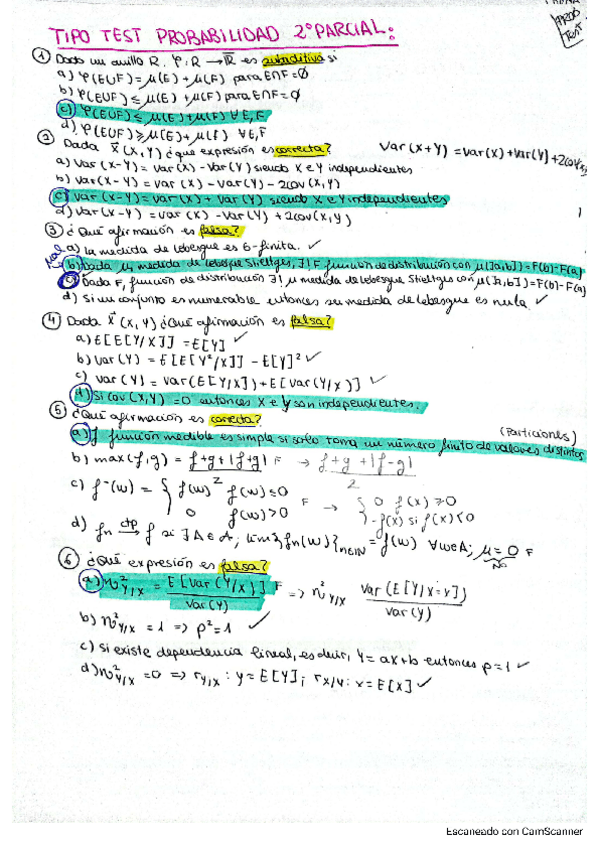 PROB
TEST
TIPO TEST PROBABILIDAD 2º PARCIAL:
① Dado un anillo R. φ: R → R̅ es subaditiva si
a) φ(E∪F) = μ(E) + μ(F) para E∩F = ∅
b) φ(E∪F) ≤ μ(E) + μ(F) para E∩F = ∅
c) φ(E∪F) ≤ μ(E) + μ(F) ∀ E, F
d) φ(E∪F) ≥ μ(E) + μ(F) ∀ E, F
② Dada X⃗ (X, Y) ¿qué expresión es correcta?
Var(X+Y) = Var(X) + Var(Y) + 2Cov
a) Var (X-Y) = Var (X) - Var (Y) siendo X e Y independientes
b) Var (X-Y) = Var (X) - Var (Y) - 2Cov (X, Y)
c) Var (X-Y) = Var (X) + Var (Y) siendo X e Y independientes
d) Var (X-Y) = Var (X) - Var (Y) + 2Cov (X, Y)
③ ¿Qué afirmación es falsa?
a) la medida de lebesgue es σ-finita. ✓
b) Dada μ medida de lebesgue Stieltges, ∃! F función de distribución con μ(]a,b]) = F(b)-F(a)
c) Dada F, función de distribución ∃! μ medida de lebesgue Stieltges con μ(]a,b]) = F(b)-F(a)
d) Si un conjunto es numerable entonces su medida de lebesgue es nula. ✓
④ Dada X⃗ (X, Y) ¿Qué afirmación es falsa?
a) E[E[Y/X]] = E[Y] ✓
b) Var (Y) = E[E[Y²/X]] - E[Y]² ✓
c) Var (Y) = Var (E[Y/X]) + E[Var (Y/X)] ✓
d) Si Cov (X, Y) = 0 entonces X e Y son independientes.
⑤ ¿Qué afirmación es correcta?
(Particiones)
a) f función medible es simple si solo toma un número finito de valores distintos
b) max (f, g) = f+g+|f+g| F → f+g+|f-g| / 2
c) f⁻(w) = { f(w)² f(w) ≤ 0 F → { 0 f(x) ≥ 0
0 f(w) > 0 -f(x) si f(x) < 0
d) fn ctp→ f si ∃ A ∈ A; lim {fn(w)}n∈N = f(w) ∀w∈A; μ = 0 F
No
⑥ ¿Qué expresión es falsa?
a) η²Y/X = E[Var (Y/X)] / Var (Y) F => η²Y/X Var (E[Y/X=x]) / Var (Y)
b) η²Y/X = 1 => ρ² = 1 ✓
c) Si existe dependencia lineal, es decir, Y = aX+b entonces ρ = 1 ✓
d) η²Y/X = 0 => rY/X : y = E[Y]; rX/Y : x = E[X] ✓
Escaneado con CamScanner